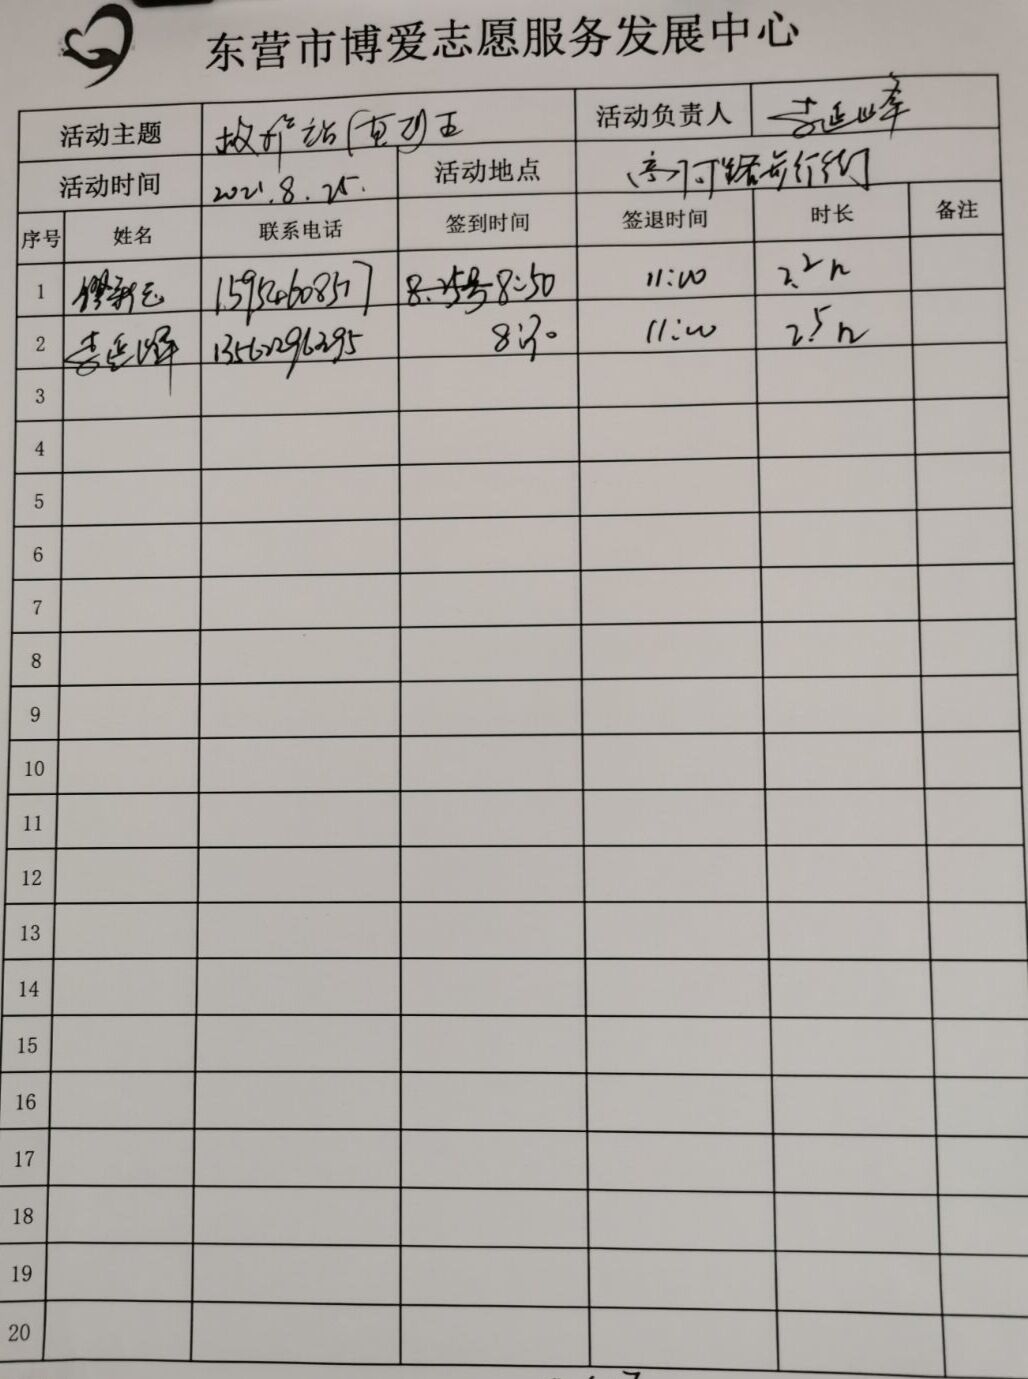 东营市博爱志愿服务发展中心
活动主题 活动负责人 李延峰
活动时间 2021.8.25. 活动地点 步行街
序号 姓名 联系电话 签到时间 签退时间 时长 备注
1 8.25号8:50 11:00 2.2h
2 李延峰 13562296295 8:30 11:00 2.5h
3
4
5
6
7
8
9
10
11
12
13
14
15
16
17
18
19
20